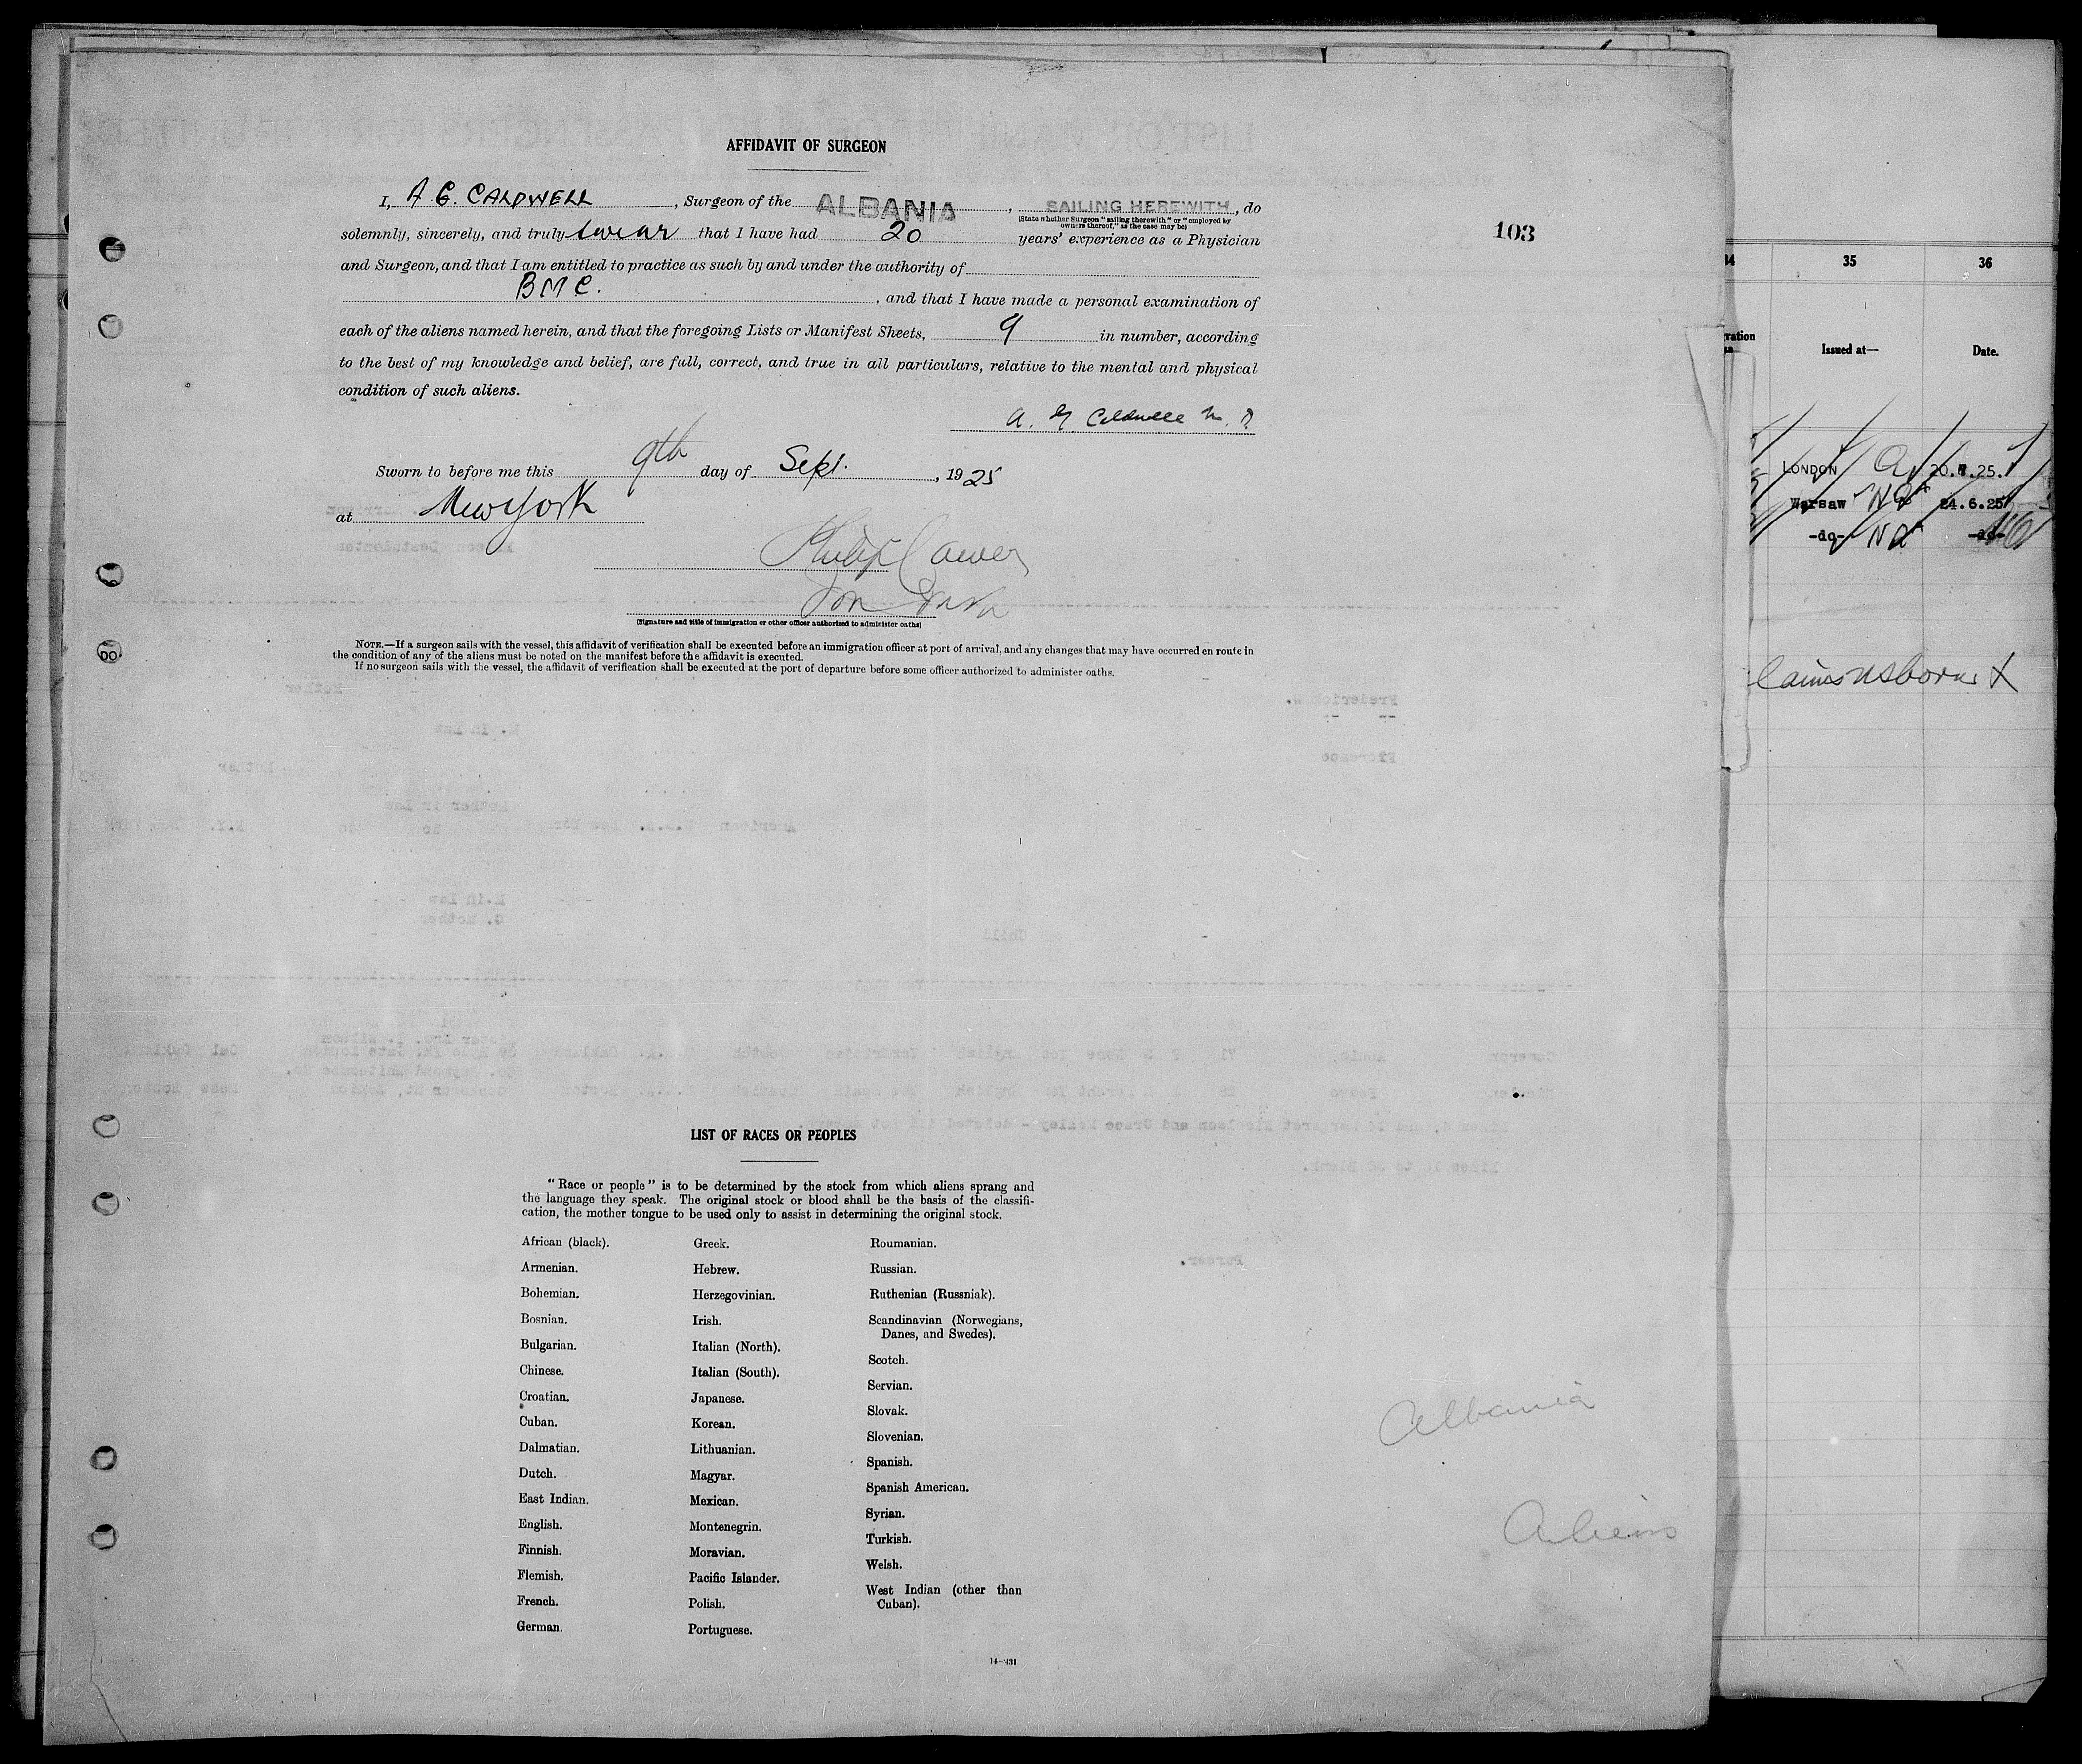 AFFIDAVIT OF SURGEON
I, A. G. CALDWELL, Surgeon of the ALBANIA, SAILING HEREWITH, do
(State whether Surgeon "sailing therewith" or "employed by
owners thereof," as the case may be)
solemnly, sincerely, and truly swear that I have had 20 years' experience as a Physician
and Surgeon, and that I am entitled to practice as such by and under the authority of
B M C., and that I have made a personal examination of
each of the aliens named herein, and that the foregoing Lists or Manifest Sheets, 9 in number, according
to the best of my knowledge and belief, are full, correct, and true in all particulars, relative to the mental and physical
condition of such aliens.
A. G. Caldwell M. D.
Sworn to before me this 9th day of Sept., 1925
at New York
(Signature and title of immigration or other officer authorized to administer oaths)
NOTE.—If a surgeon sails with the vessel, this affidavit of verification shall be executed before an immigration officer at port of arrival, and any changes that may have occurred en route in
the condition of any of the aliens must be noted on the manifest before the affidavit is executed.
If no surgeon sails with the vessel, the affidavit of verification shall be executed at the port of departure before some officer authorized to administer oaths.
103
LIST OF RACES OR PEOPLES
"Race or people" is to be determined by the stock from which aliens sprang and
the language they speak. The original stock or blood shall be the basis of the classifi-
cation, the mother tongue to be used only to assist in determining the original stock.
African (black).
Armenian.
Bohemian.
Bosnian.
Bulgarian.
Chinese.
Croatian.
Cuban.
Dalmatian.
Dutch.
East Indian.
English.
Finnish.
Flemish.
French.
German.
Greek.
Hebrew.
Herzegovinian.
Irish.
Italian (North).
Italian (South).
Japanese.
Korean.
Lithuanian.
Magyar.
Mexican.
Montenegrin.
Moravian.
Pacific Islander.
Polish.
Portuguese.
Roumanian.
Russian.
Ruthenian (Russniak).
Scandinavian (Norwegians,
Danes, and Swedes).
Scotch.
Servian.
Slovak.
Slovenian.
Spanish.
Spanish American.
Syrian.
Turkish.
Welsh.
West Indian (other than
Cuban).
14—431
Albania
Aliens
35
36
Issued at—
Date.
LONDON
Warsaw 24.6.25
-do- -do-